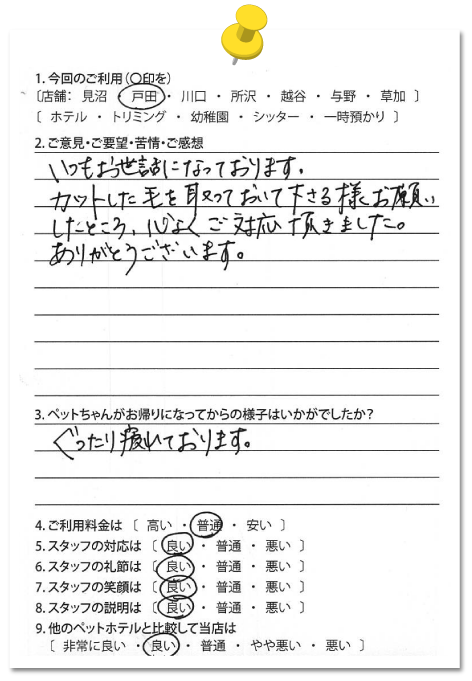 1. 今回のご利用（〇印を）
〔店舗： 見沼 ・ 戸田 ・ 川口 ・ 所沢 ・ 越谷 ・ 与野 ・ 草加 〕
〔 ホテル ・ トリミング ・ 幼稚園 ・ シッター ・ 一時預かり 〕
2. ご意見・ご要望・苦情・ご感想
いつもお世話になっております。
カットした毛を取っておいて下さる様、お願い
したところ、心よくご対応頂きました。
ありがとうございます。
3. ペットちゃんがお帰りになってからの様子はいかがでしたか？
ぐったり疲れております。
4. ご利用料金は 〔 高い ・ 普通 ・ 安い 〕
5. スタッフの対応は 〔 良い ・ 普通 ・ 悪い 〕
6. スタッフの礼節は 〔 良い ・ 普通 ・ 悪い 〕
7. スタッフの笑顔は 〔 良い ・ 普通 ・ 悪い 〕
8. スタッフの説明は 〔 良い ・ 普通 ・ 悪い 〕
9. 他のペットホテルと比較して当店は
〔 非常に良い ・ 良い ・ 普通 ・ やや悪い ・ 悪い 〕